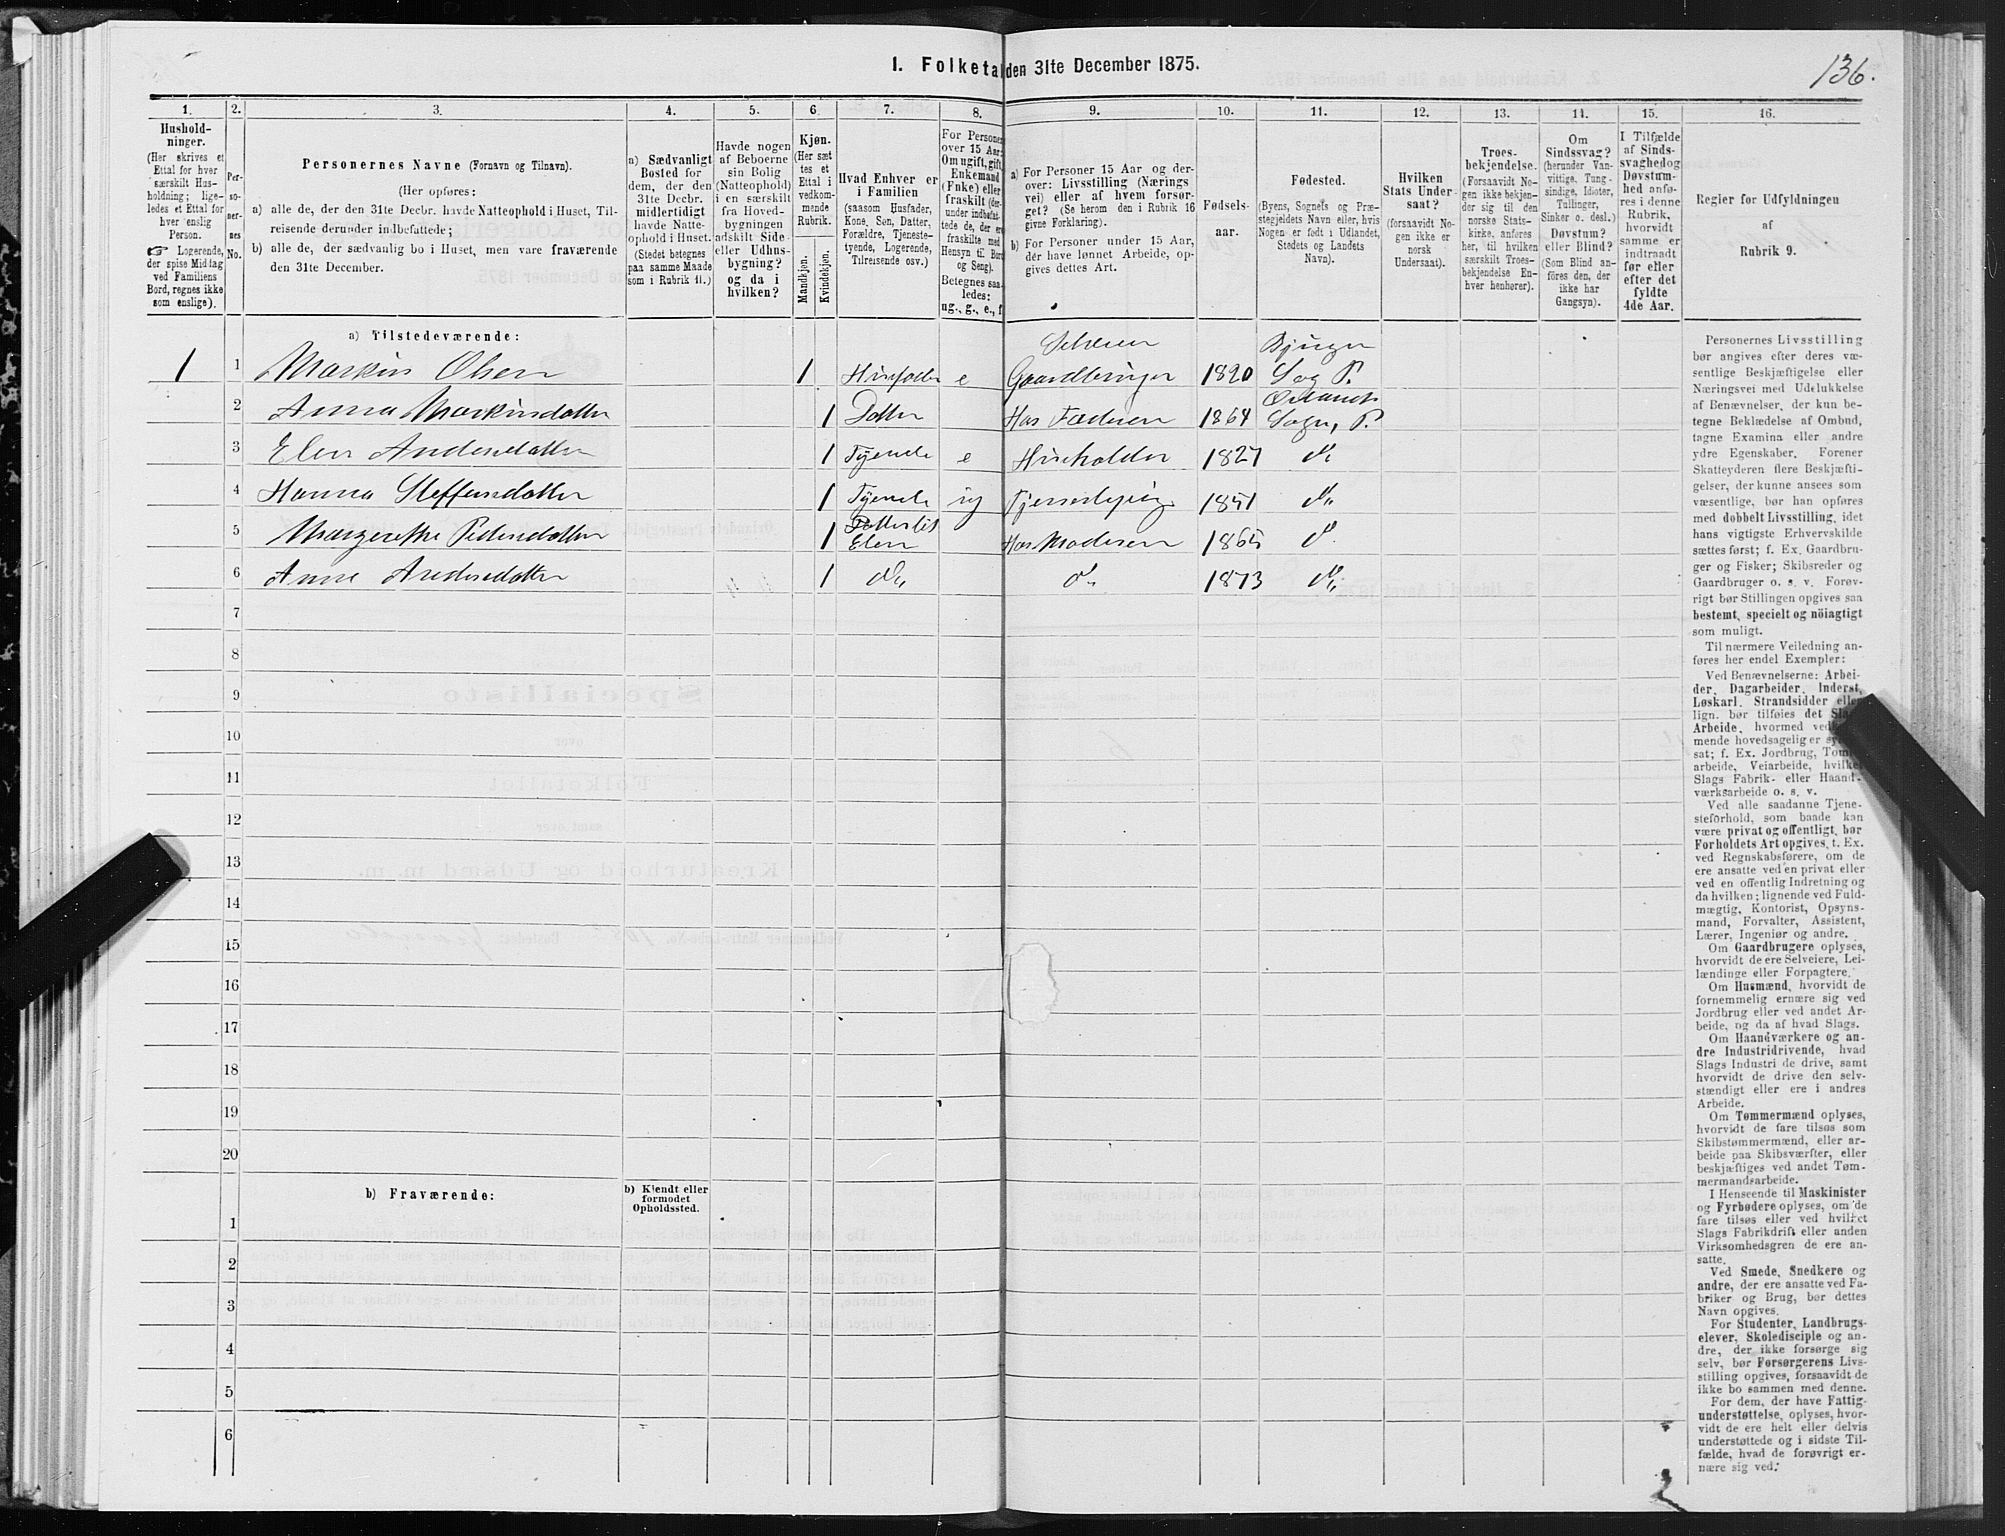 136.
1. Folketal den 31te December 1875.
1. 2. 3. 4. 5. 6. 7. 8. 9. 10. 11. 12. 13. 14. 15. 16.
Hushold-
ninger.
(Her skrives et
Ettal for hver
særskilt Hus-
holdning; lige-
ledes et Ettal for
hver enslig
Person.
☞ Logerende,
der spise Middag
ved Familiens
Bord, regnes ikke
som enslige).
Per-
so-
ner-
nes
No.
Personernes Navne (Fornavn og Tilnavn).
(Her opføres:
a) alle de, der den 31te Decbr. havde Natteophold i Huset, Til-
reisende derunder indbefattede;
b) alle de, der sædvanlig bo i Huset, men vare fraværende
den 31te December.
a) Sædvanligt
Bosted for
dem, der den
31te Decbr.
midlertidigt
havde Natte-
ophold i Huset.
(Stedet betegnes
paa samme Maade
som i Rubrik 11.)
Havde nogen
af Beboerne
sin Bolig
(Natteophold)
i en særskilt
fra Hoved-
bygningen
adskilt Side-
eller Udhus-
bygning?
og da i
hvilken?
Kjøn.
(Her sæt
tes et
Ettal i
vedkom-
mende
Rubrik.
Mandkjøn.
Kvindekjøn.
Hvad Enhver er
i Familien
(saasom Husfader,
Kone, Søn, Datter,
Forældre, Tjeneste-
tyende, Logerende,
Tilreisende osv.)
For Personer
over 15 Aar:
Om ugift, gift,
Enkemand
(Enke) eller
fraskilt (der-
under indbefat-
tede de, der ere
fraskilte med
Hensyn til Bord
og Seng).
Betegnes saa-
ledes:
ug., g., e., f.
a) For Personer 15 Aar og der-
over: Livsstilling (Nærings
vei) eller af hvem forsør-
get? (Se herom den i Rubrik 16
givne Forklaring).
b) For Personer under 15 Aar,
der have lønnet Arbeide, op-
gives dettes Art.
Fødsels-
aar.
Fødested.
(Byens, Sognets og Præ-
stegjeldets Navn eller, hvis
Nogen er født i Udlandet,
Stedets og Landets
Navn).
Hvilken
Stats Under-
saat?
(forsaavidt No-
gen ikke er
norsk
Undersaat).
Troes-
bekjendelse.
(Forsaavidt No-
gen ikke bekjen-
der sig til den
norske Stats-
kirke, anføres
her, til hvilken
særskilt Troes-
bekjendelse En-
hver henhører).
Om
Sindssvag?
(herunder Van-
vittige, Tung-
sindige, Idioter,
Tullinger,
Sinker o. desl.)
Døvstum?
eller Blind?
(Som Blind an-
føres den, der
ikke har
Gangsyn).
I Tilfælde
af Sinds-
svaghed og
Døvstum-
hed anfø-
res i denne
Rubrik,
hvorvidt
samme er
indtraadt
før eller
efter det
fyldte
4de Aar.
Regler for Udfyldningen
af
Rubrik 9.
a) Tilstedeværende:
1 1 Markus Olsen 1 Husfader e Selveier Gaardbruger 1820 Bjugn Sog P.
2 Anna Markusdatter 1 Datter Hos Faderen 1864 Ørlands Sogn, P.
3 Elen Andersdatter 1 Tjenede e Husholder 1827 do
4 Hanna Steffensdatter 1 Tjenede ug 1851 do
5 Margrethe Pedersdatter 1 Datter til Elen Hos Moderen 1865 do
6 Anne Andersdatter 1 do do 1873 do
7
8
9
10
11
12
13
14
15
16
17
18
19
20
b) Fraværende:
b) Kjendt eller
formodet
Opholdssted.
1
2
3
4
5
6
Personernes Livsstilling
bør angives efter deres væ-
sentlige Beskjæftigelse eller
Næringsvei med Udelukkelse
af Benævnelser, der kun be-
tegne Beklædelse af Ombud,
tagne Examina eller andre
ydre Egenskaber. Forener
Skatteyderen flere Beskjæfti-
gelser, der kunne ansees som
væsentlige, bør han opføres
med dobbelt Livsstilling, idet
hans vigtigste Erhvervskilde
sættes først; f. Ex. Gaardbru-
ger og Fisker; Skibsreder og
Gaardbruger o. s. v. Forøv-
rigt bør Stillingen opgives saa
bestemt, specielt og nöiagtigt
som muligt.
Til nærmere Veiledning an-
føres her endel Exempler:
Ved Benævnelserne: Arbei-
der, Dagarbeider, Inderst,
Løskarl, Strandsidder eller
lign. bør tilføies det Slags
Arbeide, hvormed vedkom-
mende hovedsagelig er syssel-
sat; f. Ex. Jordbrug, Tomte-
arbeide, Veiarbeide, hvilket
Slags Fabrik- eller Haand-
værksarbeide o. s. v.
Ved alle saadanne Tjene-
steforhold, som baade kan
være privat og offentligt, bør
Forholdets Art opgives, t. Ex.
ved Regnskabsførere, om de
ere ansatte ved en privat eller
ved en offentlig Indretning og
da hvilken; lignende ved Fuld-
mægtig, Kontorist, Opsyns-
mand, Forvalter, Assistent,
Lærer, Ingeniør og andre.
Om Gaardbrugere oplyses,
hvorvidt de ere Selveiere, Lei-
lændinge eller Forpagtere.
Om Husmænd, hvorvidt de
fornemmelig ernære sig ved
Jordbrug eller ved andet Ar-
beide, og da af hvad Slags.
Om Haandværkere og an-
dre Industridrivende, hvad
Slags Industri de drive, samt
hvorvidt de drive den selv-
stændigt eller ere i andres
Arbeide.
Om Tømmermænd oplyses,
hvorvidt de fare tilsøs som
Skibstømmermænd, eller ar-
beide paa Skibsværfter, eller
beskjæftiges ved andet Tøm-
mermandsarbeide.
I Henseende til Maskinister
og Fyrbødere oplyses, om de
fare tilsøs eller ved hvilket
Slags Fabrikdrift eller anden
Virksomhedsgren de ere an-
satte.
Ved Smede, Snedkere og
andre, der ere ansatte ved Fa-
briker og Brug, bør dettes
Navn opgives.
For Studenter, Landbrugs-
elever, Skoledisciple og an-
dre, der ikke forsørge sig
selv, bør Forsørgerens Livs-
stilling opgives, forsaavidt de
ikke bo sammen med denne.
For dem, der have Fattig-
understøttelse, oplyses, hvor-
vidt de ere helt eller delvis
understøttede og i sidste Til-
fælde, hvad de forøvrigt er-
nære sig ved.